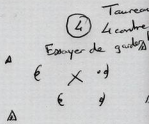 4 Taureau
4 contre
Essayer de garder